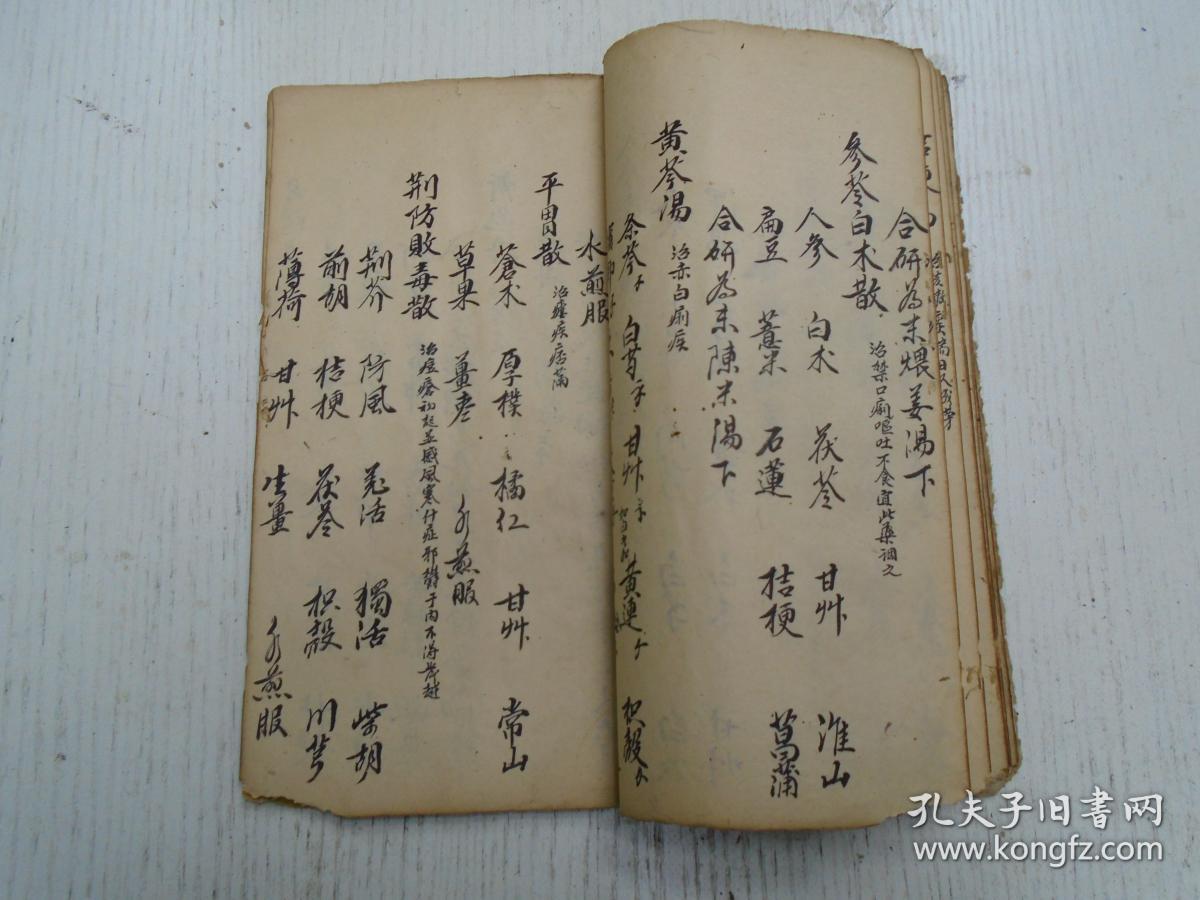 合研為末煨姜湯下
參苓白术散 治禁口痢嘔吐不食宜此藥調之
人參 白术 茯苓 甘艸 淮山
扁豆 薏米 石蓮 桔梗 菖蒲
合研為末陳米湯下
黄芩湯 治赤白痢疾
条芩 白芍 甘艸 黄連 枳殼
水煎服
平胃散 治瘧疾痞滿
蒼术 厚樸 橘仁 甘艸 常山
草果 薑枣 水煎服
荆防敗毒散 治痘瘡初起並感風寒什症邪欝于内不得發越
荆芥 防風 羌活 獨活 柴胡
前胡 桔梗 茯苓 枳殼 川芎
薄荷 甘艸 生薑 水煎服
孔夫子旧书网
www.kongfz.com